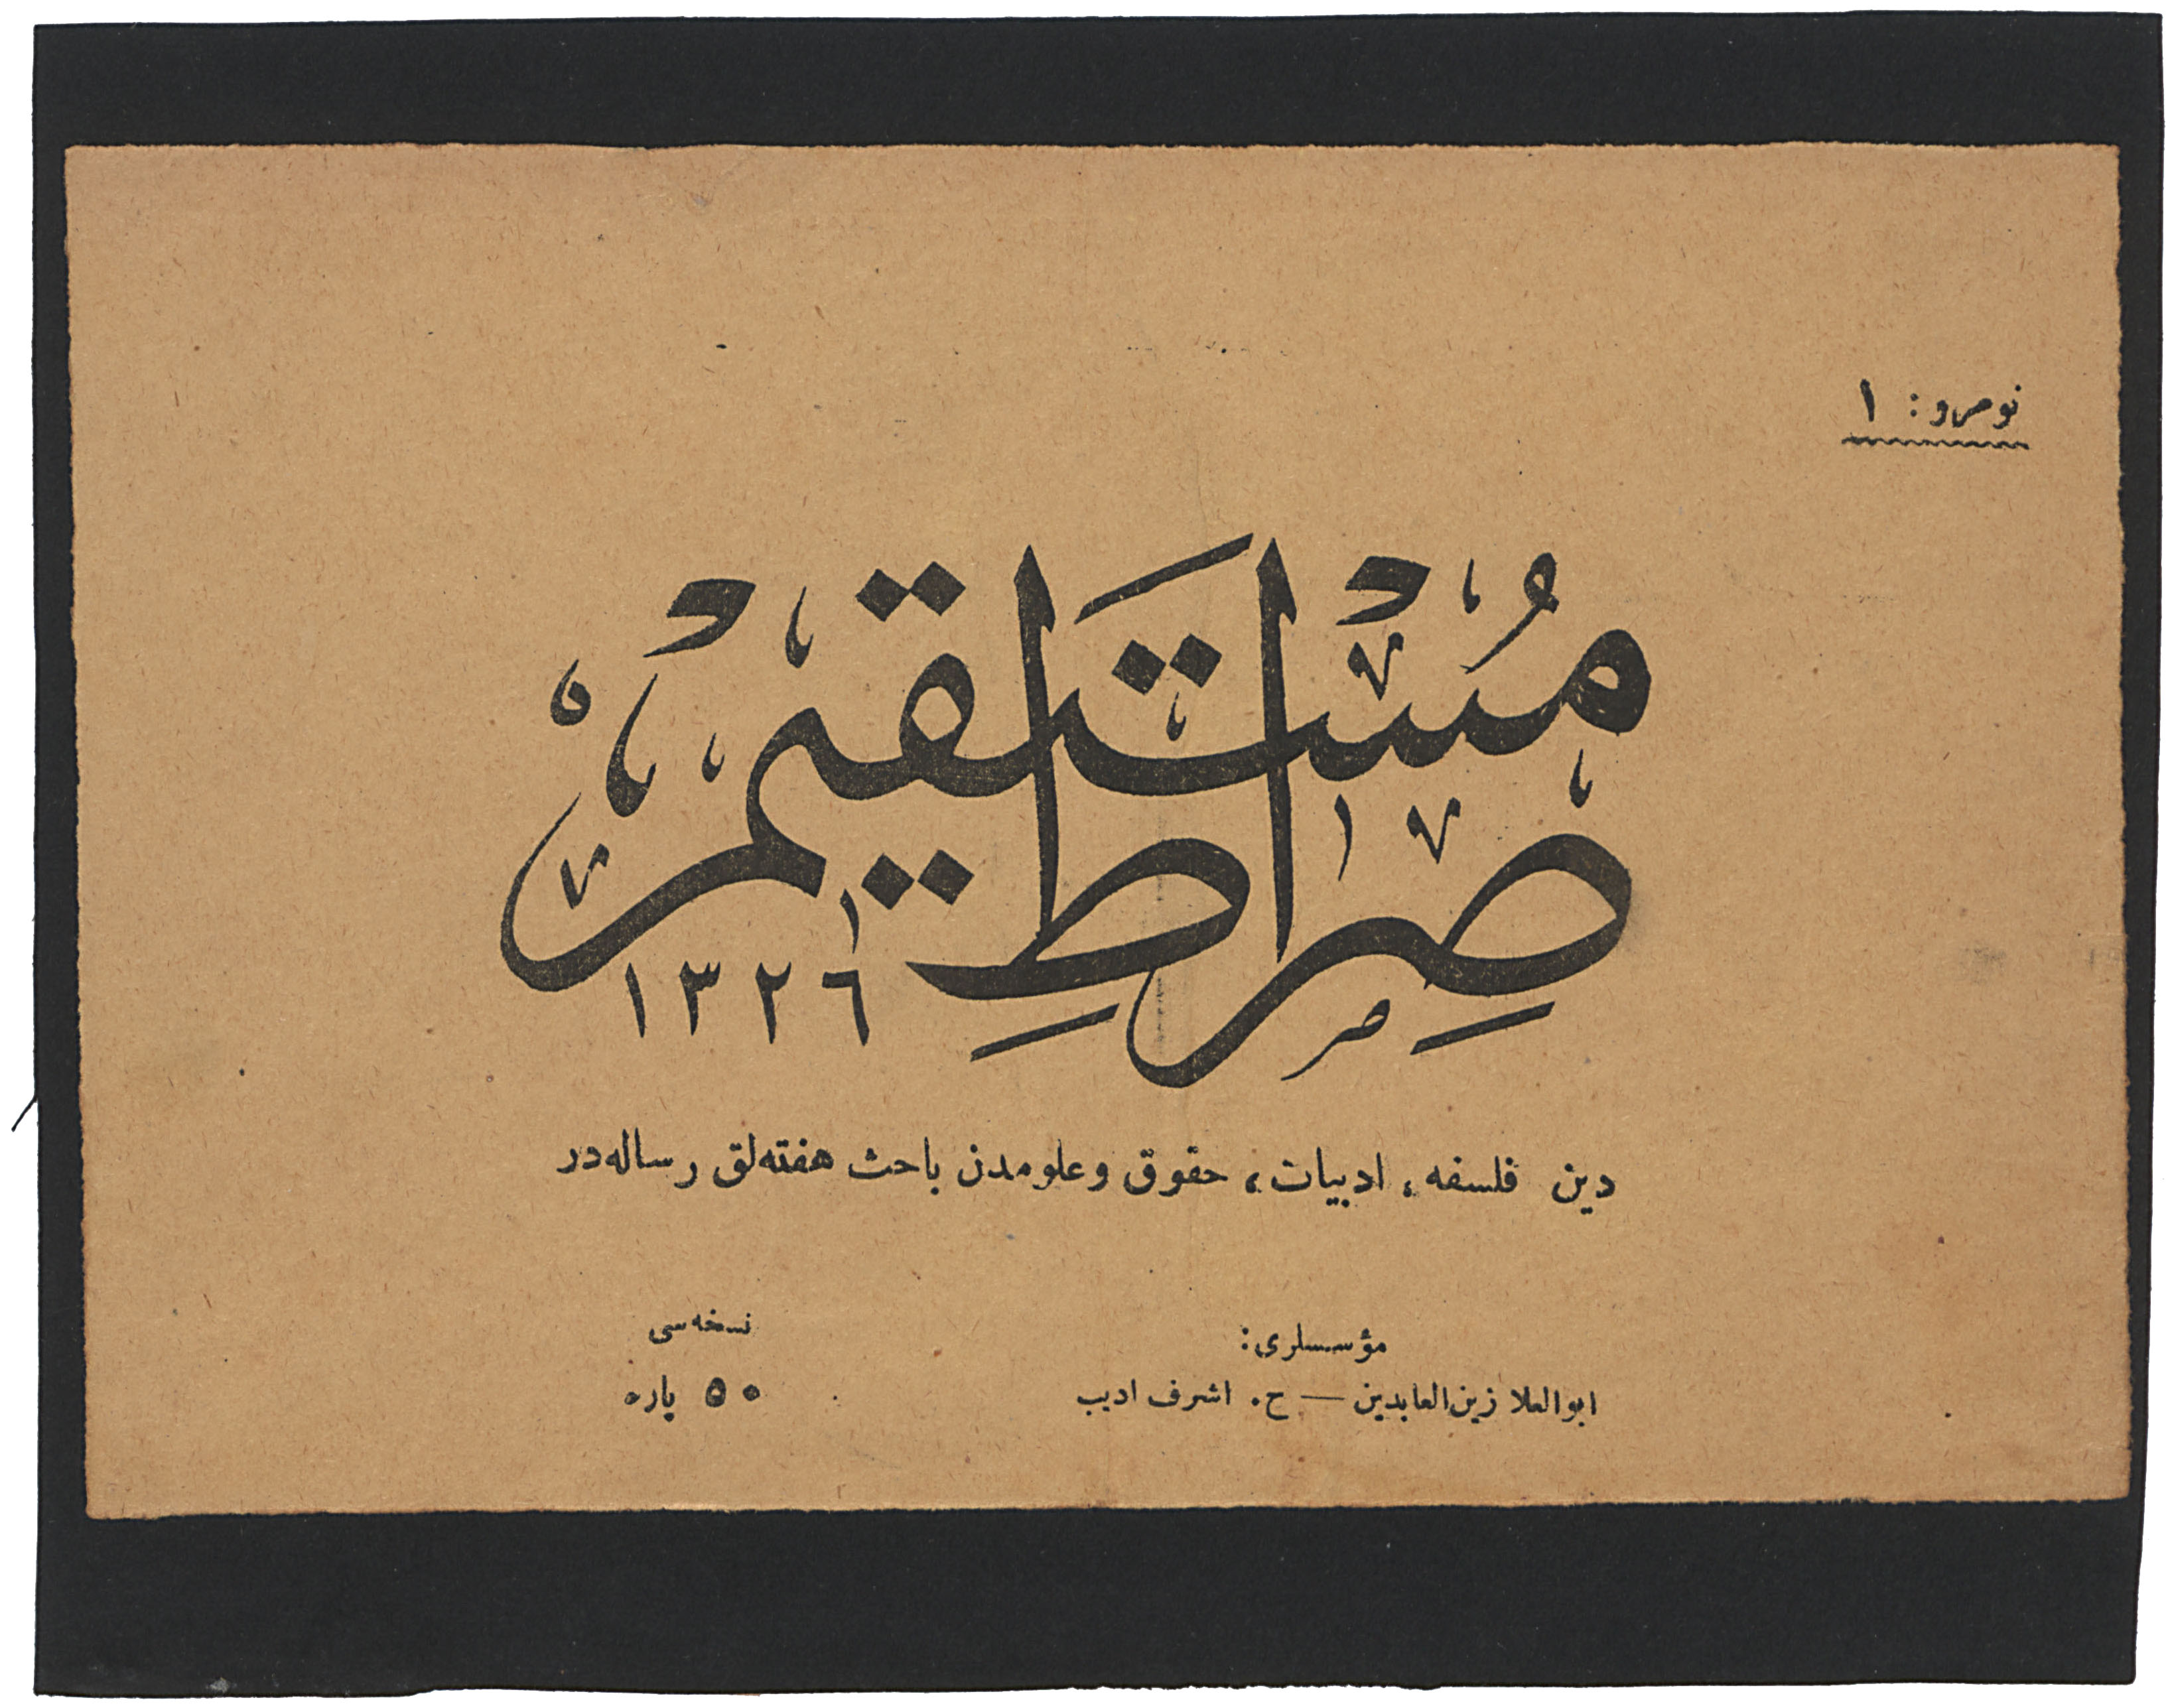 نومرو : ١
صِرَاطِ مُسْتَقِيم
١٣٢٦
دين فلسفه ، ادبيات ، حقوق وعلومدن باحث هفته‌لق رساله‌در
مؤسسلری :
ابوالعلا زين‌العابدين — ح. اشرف اديب
نسخه‌سی
٥٠ پاره